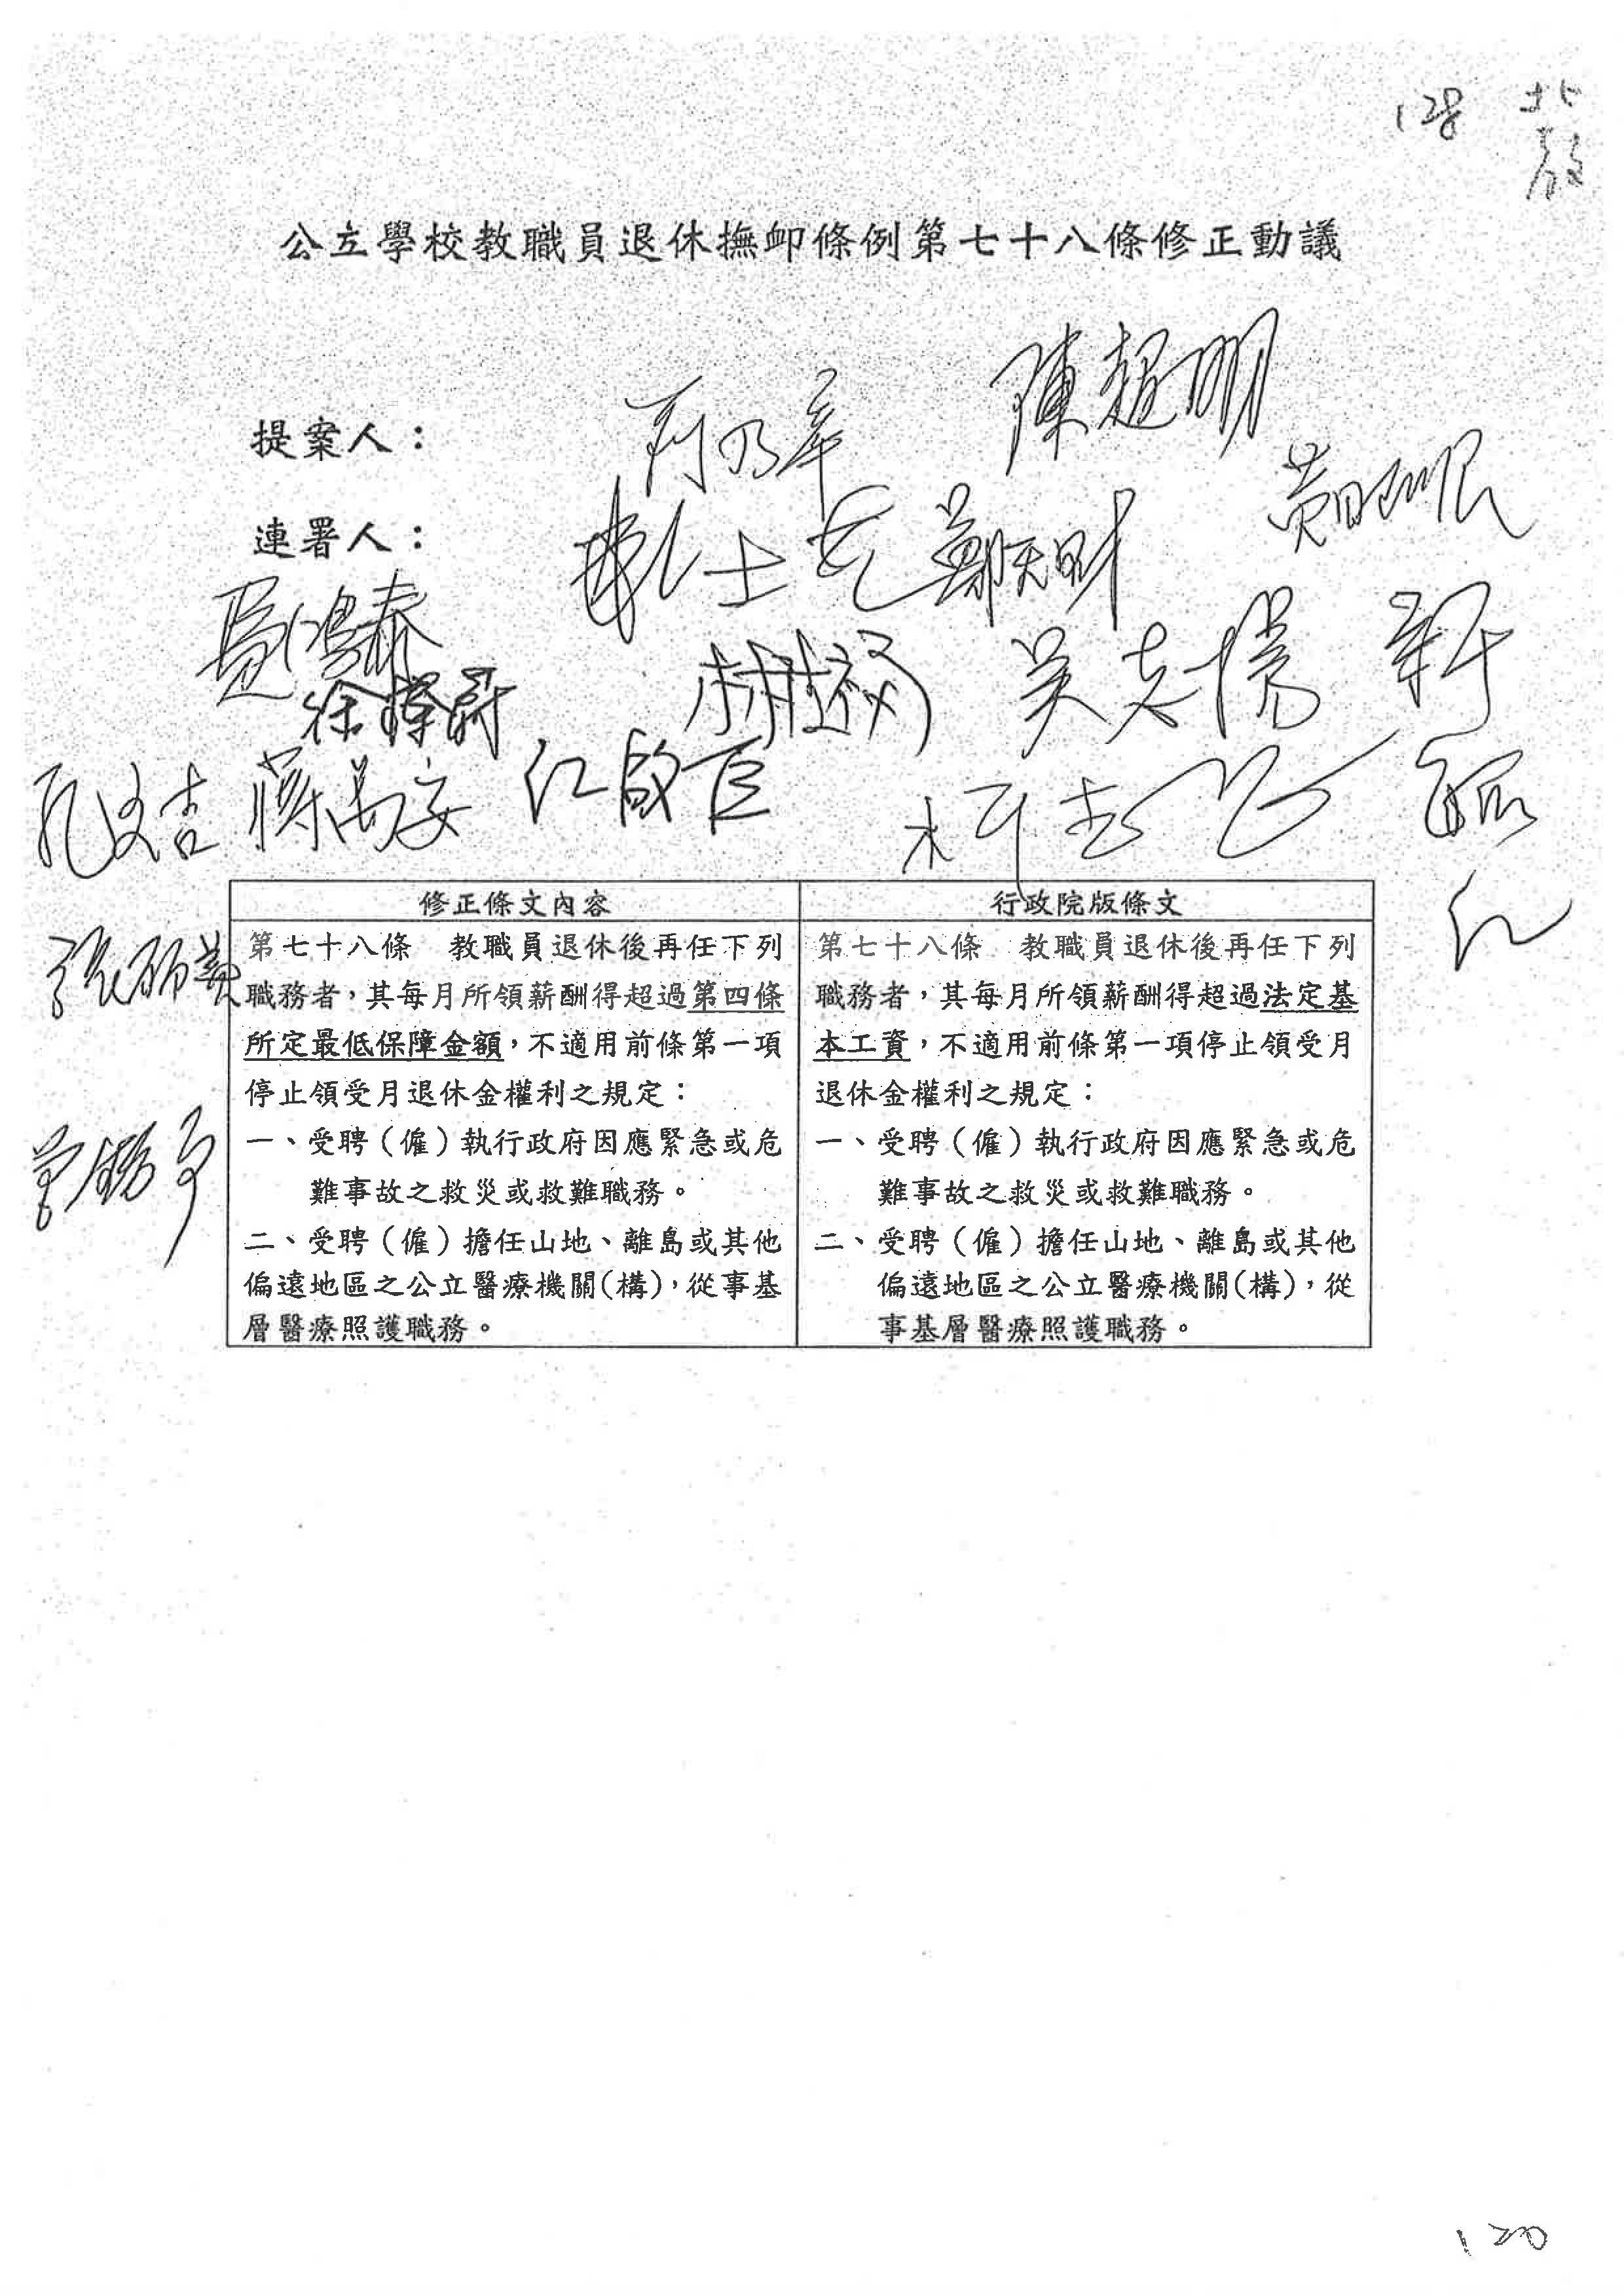 128
公立學校教職員退休撫卹條例第七十八條修正動議
提案人：
陳超明
連署人：
鄭天財
賴士葆
費鴻泰
林德福
吳志揚
徐榛蔚
孔文吉 蔣萬安 江啟臣
柯志恩
張麗善
曾銘宗
修正條文內容
第七十八條　教職員退休後再任下列
職務者，其每月所領薪酬得超過第四條
所定最低保障金額，不適用前條第一項
停止領受月退休金權利之規定：
一、受聘（僱）執行政府因應緊急或危
難事故之救災或救難職務。
二、受聘（僱）擔任山地、離島或其他
偏遠地區之公立醫療機關(構)，從事基
層醫療照護職務。
行政院版條文
第七十八條　教職員退休後再任下列
職務者，其每月所領薪酬得超過法定基
本工資，不適用前條第一項停止領受月
退休金權利之規定：
一、受聘（僱）執行政府因應緊急或危
難事故之救災或救難職務。
二、受聘（僱）擔任山地、離島或其他
偏遠地區之公立醫療機關(構)，從
事基層醫療照護職務。
120